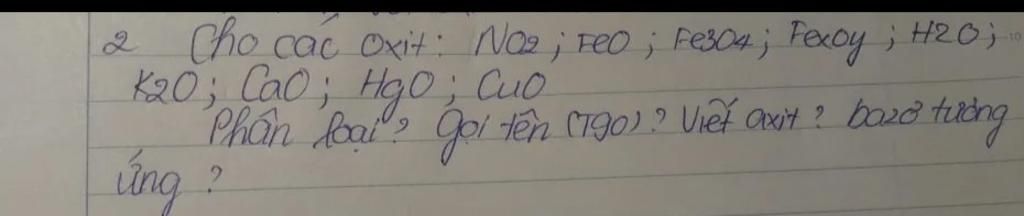 2 Cho các Oxit: NO2; FeO; Fe3O4; FexOy; H2O;
K2O; CaO; HgO; CuO
Phân loại? Gọi tên (TGO)? Viết axit? bazơ tương
ứng?